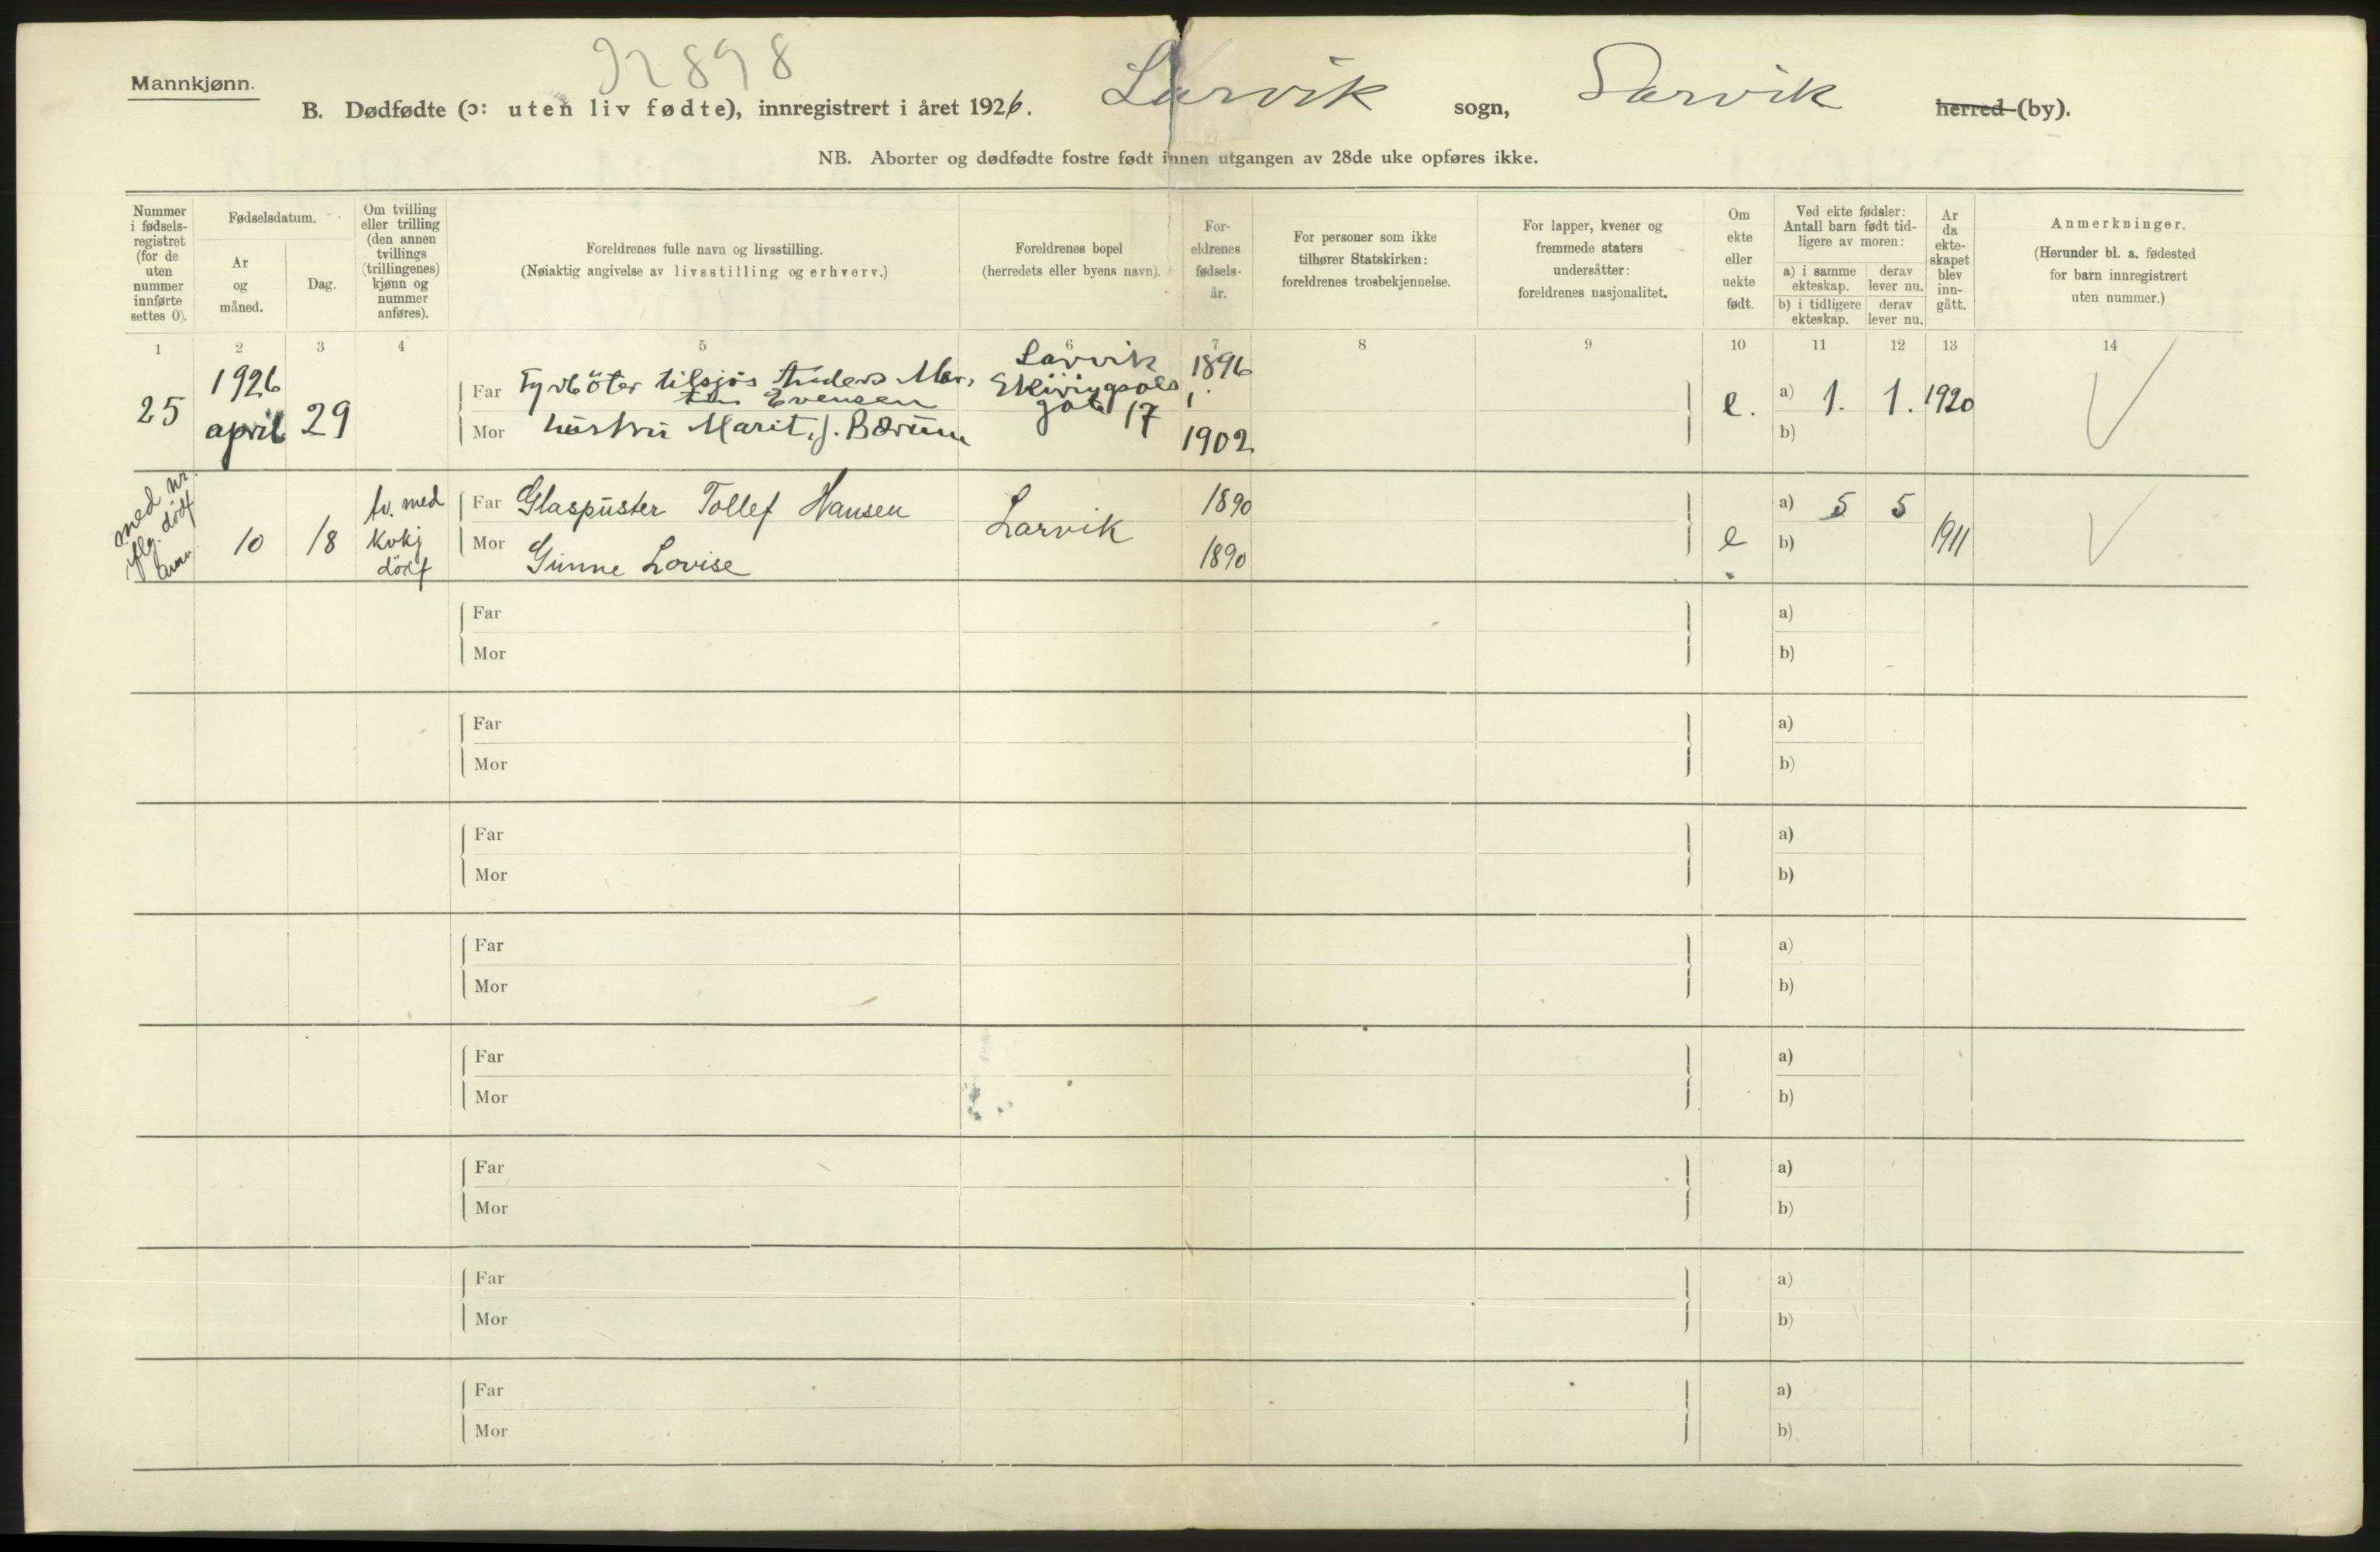 Mannkjønn.
B. Dødfødte (ɔ: uten liv fødte), innregistrert i året 1926. Larvik sogn, Larvik herred (by).
NB. Aborter og dødfødte fostre født innen utgangen av 28de uke opføres ikke.
Nummer i fødsels-registret (for de uten nummer innførte settes 0).
Fødselsdatum.
Ar og måned.
Dag.
Om tvilling eller trilling (den annen tvillings (trillingenes) kjønn og nummer anføres).
Foreldrenes fulle navn og livsstilling.
(Nøiaktig angivelse av livsstilling og erhverv.)
Foreldrenes bopel
(herredets eller byens navn).
For-eldrenes fødsels-år.
For personer som ikke tilhører Statskirken: foreldrenes trosbekjennelse.
For lapper, kvener og fremmede staters undersåtter: foreldrenes nasjonalitet.
Om ekte eller uekte født.
Ved ekte fødsler: Antall barn født tid-ligere av moren:
a) i samme ekteskap.
derav lever nu.
b) i tidligere ekteskap.
derav lever nu.
Ar da ekte-skapet blev inn-gått.
Anmerkninger.
(Herunder bl. a. fødested for barn innregistrert uten nummer.)
1 2 3 4 5 6 7 8 9 10 11 12 13 14
25 1926 april 29
Far Fyrböter tilsjös Anders
Evensen
Mor hustru Marit, f. Bærum
Larvik
gate 17
1896
1902
e. a) 1. 1. 1920
b)
med nr.
10 18 tv. med
kvkj
dödf
Far Glaspuster Tollef Hansen
Mor Gunne Lovise
Larvik
1890
1890
e a) 5 5
b) 1911
Far a)
Mor b)
Far a)
Mor b)
Far a)
Mor b)
Far a)
Mor b)
Far a)
Mor b)
Far a)
Mor b)
Far a)
Mor b)
Far a)
Mor b)